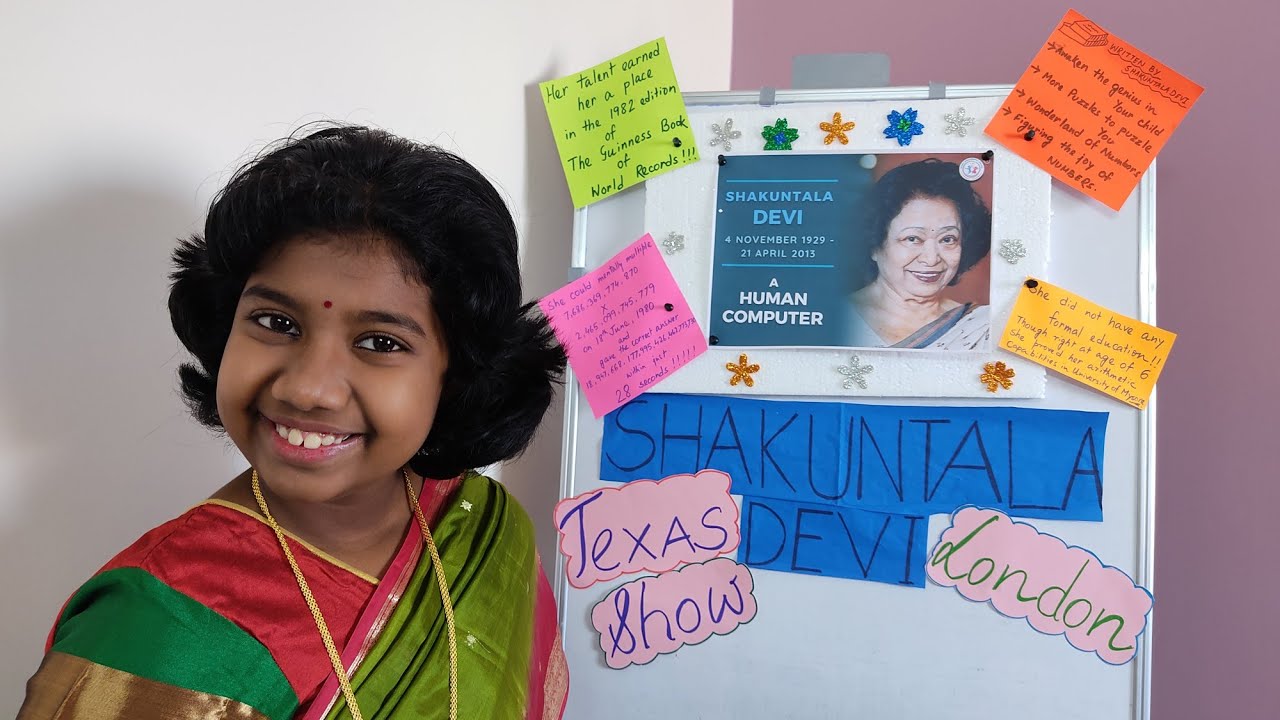 Her talent earned
her a place
in the 1982 edition
of
The Guinness Book
of
World Records!!!
WRITTEN BY
SHAKUNTALA DEVI
→ Awaken the genius in
Your child
→ More Puzzles to puzzle
You
→ Wonderland of Numbers
→ Figuring the Joy of
NUMBERS.
SHAKUNTALA
DEVI
4 NOVEMBER 1929 -
21 APRIL 2013
A
HUMAN
COMPUTER
She could mentally multiple
7,686,369,774,870
x
2,465,099,745,779
on 18th June, 1980
and
gave the correct answer
within just
28 seconds!!!!!
She did not have any
formal education!!
Though right at age of 6
She proved her arithmetic
capabilities in University of Mysore
SHAKUNTALA
DEVI
Texas
Show
London